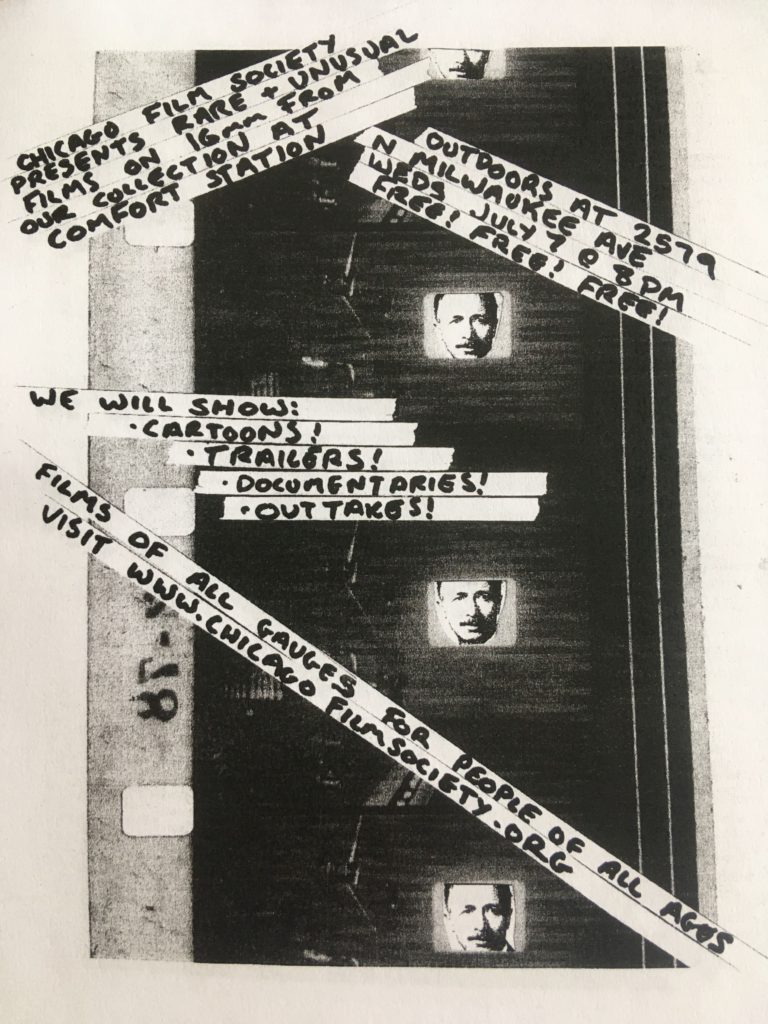 CHICAGO FILM SOCIETY
PRESENTS RARE + UNUSUAL
FILMS ON 16mm FROM
OUR COLLECTION AT
COMFORT STATION
OUTDOORS AT 2579
N MILWAUKEE AVE
WEDS JULY 7 @ 8 PM
FREE! FREE! FREE!
WE WILL SHOW:
· CARTOONS!
· TRAILERS!
· DOCUMENTARIES!
· OUTTAKES!
FILMS OF ALL GAUGES FOR PEOPLE OF ALL AGES
VISIT WWW.CHICAGOFILMSOCIETY.ORG